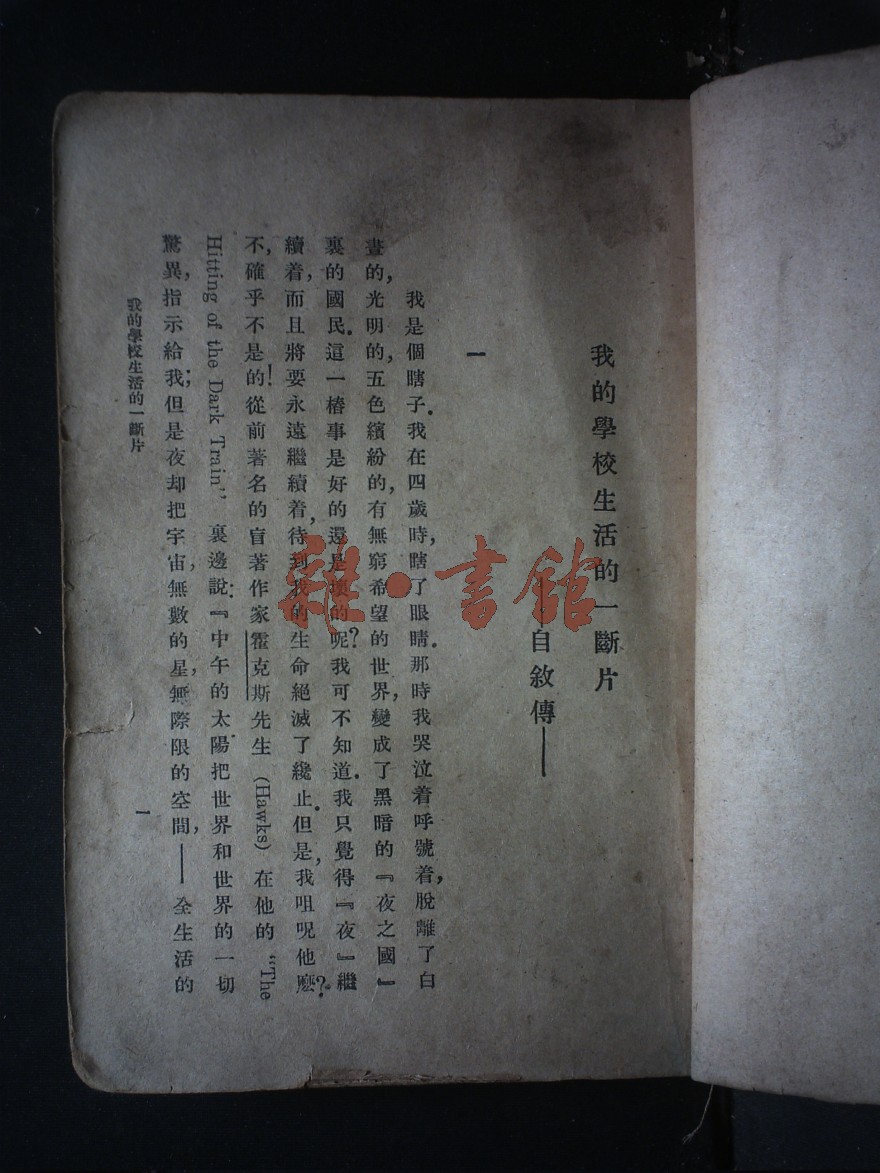 我的學校生活的一斷片
——自敘傳——
一
我是個瞎子。我在四歲時，瞎了眼睛。那時我哭泣着呼號着，脫離了白
晝的，光明的，五色繽紛的，有無窮希望的世界，變成了黑暗的『夜之國』
裏的國民。這一樁事是好的還是壞的呢？我可不知道。我只覺得『夜』繼
續着，而且將要永遠繼續着，待到我的生命絕滅了纔止。但是，我咀呪他麽？
不，確乎不是的！從前著名的盲著作家霍克斯先生 (Hawks) 在他的 “The
Hitting of the Dark Train” 裏邊說：『中午的太陽把世界和世界的一切
驚異，指示給我；但是夜却把宇宙，無數的星，無際限的空間，——全生活的
我的學校生活的一斷片
一
雜·書館